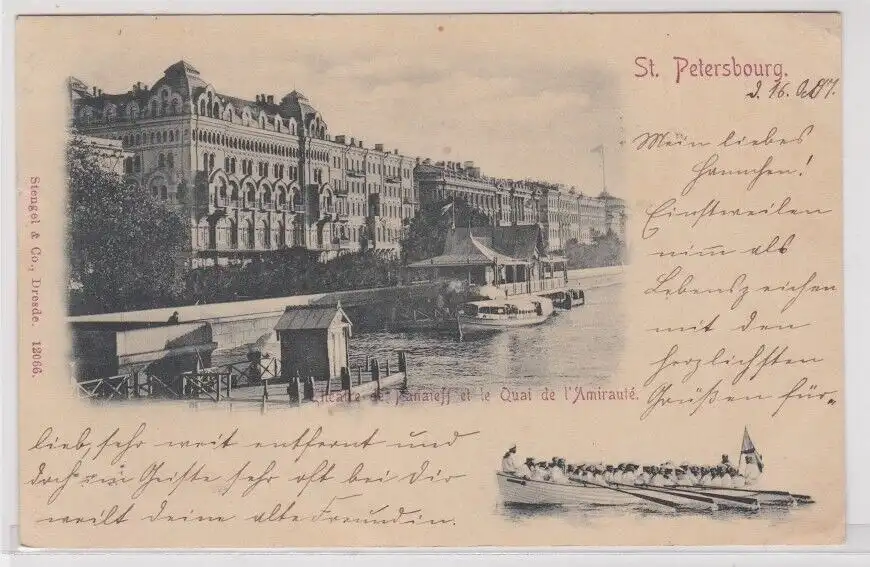 St. Petersbourg.
d. 16. Oct 07.
Mein liebes
Hannchen!
Einstweilen
nim̅ als
Lebenszeichen
mit den
herzlichsten
Grüßen für-
lieb, sehr weit entfernt und
doch im Geiste sehr oft bei Dir
weilt deine alte Freundin.
Théatre de Panaieff et le Quai de l'Amirauté.
Stengel & Co., Dresde. 12066.